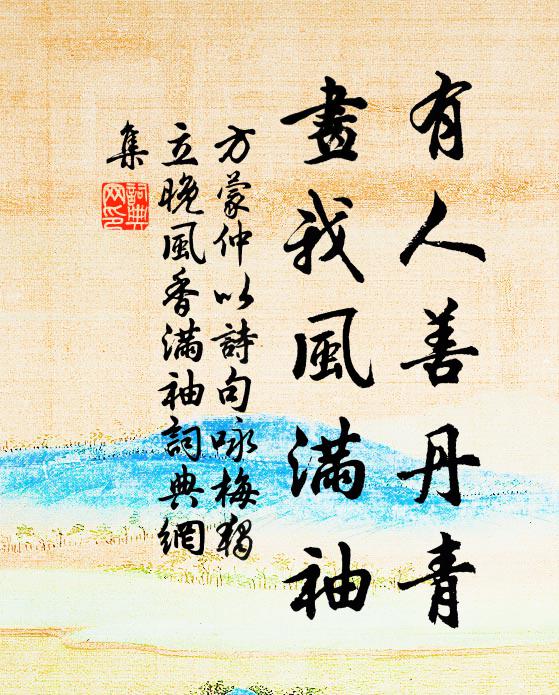 有人善丹青
畫我風滿袖
方蒙仲以詩句咏梅獨
立晚風香滿袖詞典網
集
詞典
網印